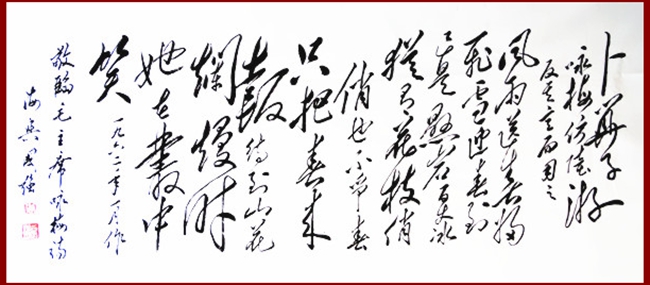 卜算子
咏梅仿陆游
反其意而用之
风雨送春归
飞雪迎春到
已是悬岩百丈冰
犹有花枝俏
俏也不争春
只把春来
报 待到山花
烂熳时
她在丛中
笑
一九六 作
敬临毛主席咏梅词